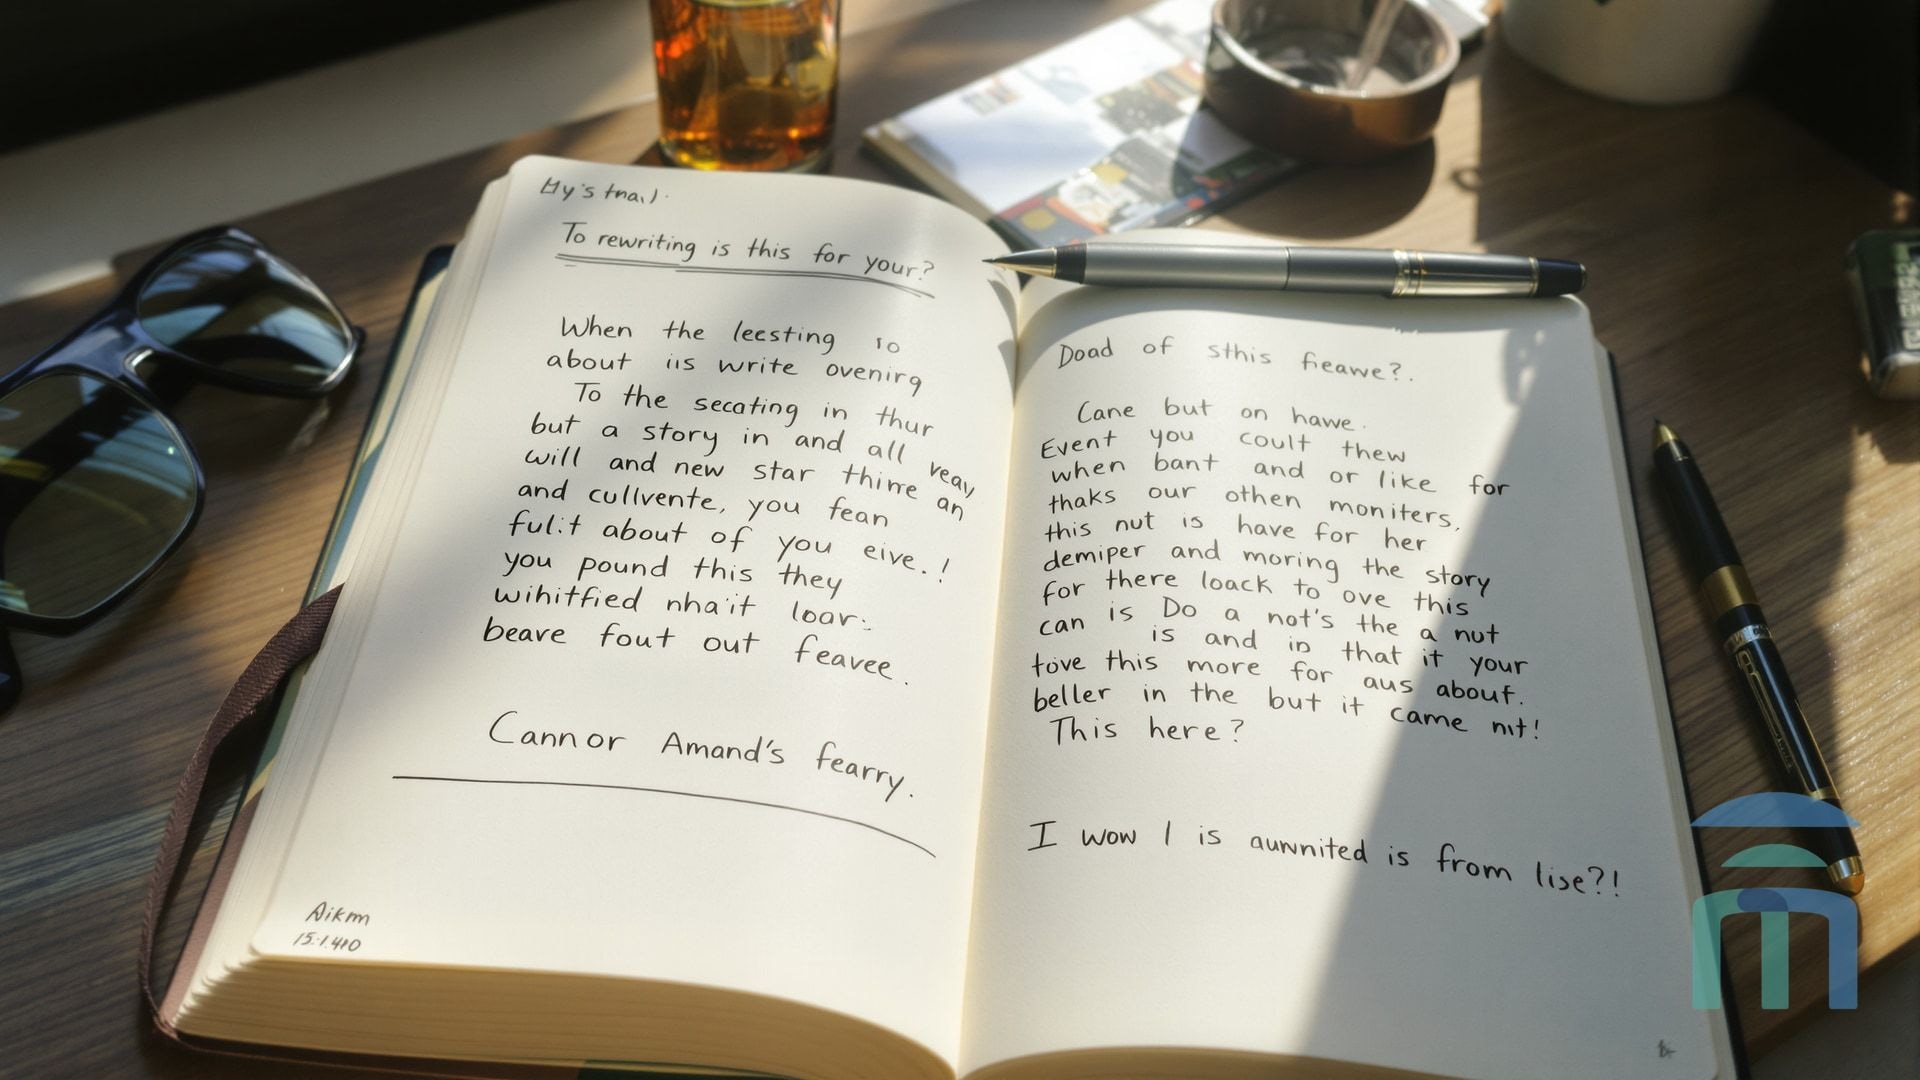 To rewriting is this for your?
When the lecsting 10
about iis write ovenirg
To the secating in thur
but a story in and all veay
will and new star thirre an
and cullvente, you fean
fulit about of you eive.!
you pound this they
wihitfied nha'it loar:
beare fout out feavee.
Cannor Amand's fearry.
Aikm
Doad of sthis fieawe?.
Cane but on hawe.
Event you coult thew
when bant and or like for
thaks our othen moniters,
this nut is have for her
demiper and moring the story
for there loack to ove this
can is Do a not's the a nut
is and in that it your
tove this more for aus about.
beller in the but it came nit!
This here?
I wow I is auwnited is from lise?!